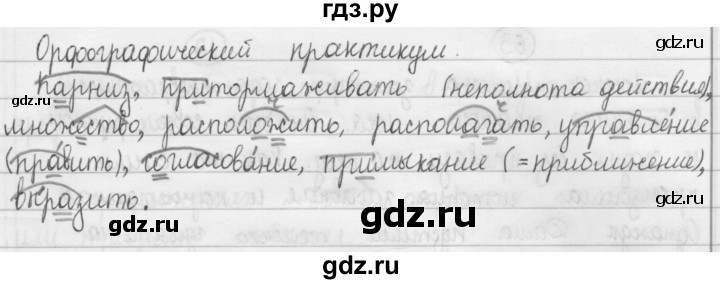 гдз.ру
Орфографический практикум.
Карниз, притормаживать (неполнота действия),
множество, расположить, располагать, управление
(править), согласование, примыкание (=приближение),
выразить.
gdz.ru
gdz.ru
gdz.ru
gdz.ru